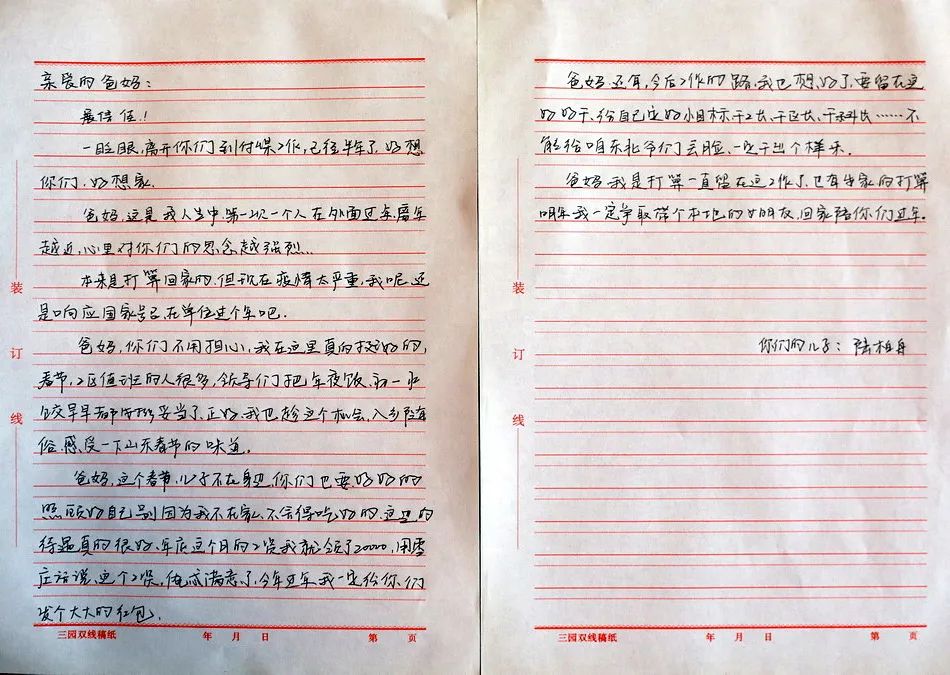 亲爱的爸妈：
展信佳！
一眨眼，离开你们到付煤工作，已经半年了，好想
你们，好想家。
爸妈，这是我人生中第一次一个人在外面过年，离年
越近，心里对你们的思念越强烈…
本来是打算回家的，但现在疫情太严重，我呢，还
是响应国家号召，在单位过个年吧。
爸妈，你们不用担心，我在这里真的挺好的，
春节，工区值班的人很多，领导们把年夜饭、初一水
饺早早都安排妥当了，正好，我也趁这个机会，入乡随
俗，感受一下山东春节的味道。
爸妈，这个春节，儿子不在身边，你们也要好好的
照顾好自己，别因为我不在家，不舍得吃好的，这里的
待遇真的很好，年底这个月的工资我就领了20000，用零
应话说，这个工资，俺忒满意了，今年过年，我一定给你们
发个大大的红包。
装
订
线
三园双线稿纸 年 月 日 第 页
爸妈，还有，今后工作的路，我也想好了，要留在这
好好干，给自己定好小目标，干工长、干区长、干科长……不
能给咱东北爷们丢脸，一定干出个样来。
爸妈，我是打算一直留在这工作了，也有安家的打算，
明年，我一定争取带个本地的女朋友，回家陪你们过年。
你们的儿子：陆柏舟
装
订
线
三园双线稿纸 年 月 日 第 页